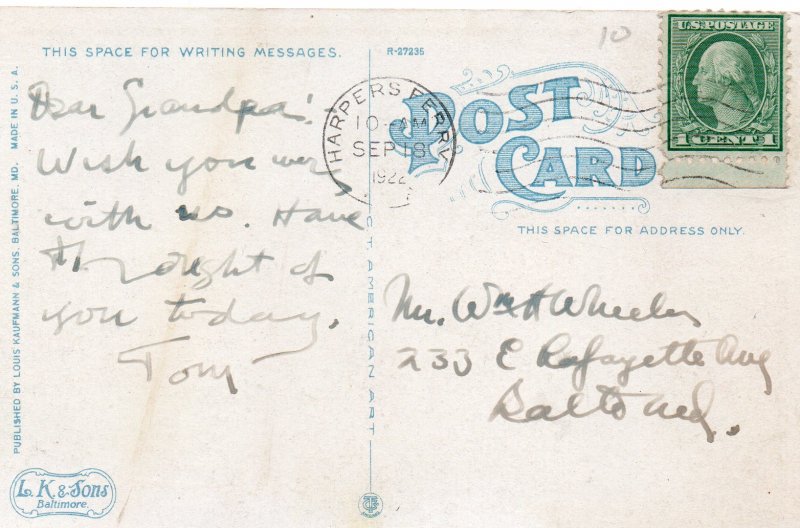 THIS SPACE FOR WRITING MESSAGES.
Dear Grandpa!
Wish you were
with us. Have
thought of
you today.
Tom
PUBLISHED BY LOUIS KAUFMANN & SONS, BALTIMORE, MD. MADE IN U. S. A.
L. K. & Sons
Baltimore.
R-27235
10
HARPERS FERRY
10-AM
SEP 18
1922
U.S. POSTAGE
1 CENT 1
POST
CARD
THIS SPACE FOR ADDRESS ONLY.
Mr. Wm H Wheeler
233 E Lafayette Ave
Balto Md.
CT AMERICAN ART